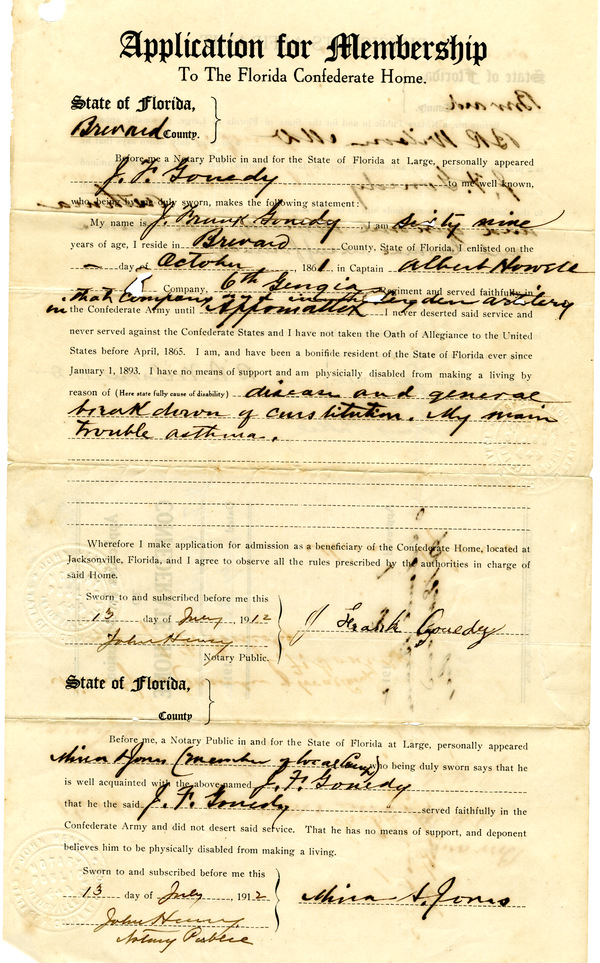 Application for Membership
To The Florida Confederate Home.
State of Florida,
Brevard County.
Before me a Notary Public in and for the State of Florida at Large, personally appeared
J. F. Gonedy to me well known,
who being by me duly sworn, makes the following statement:
My name is J. Frank Gonedy I am sixty nine
years of age, I reside in Brevard County, State of Florida, I enlisted on the
– day of October 1861 in Captain Albert Howell
Company, 6th Gengia Regiment and served faithfully in
in that company and in the artillery
the Confederate Army until Appomattox I never deserted said service and
never served against the Confederate States and I have not taken the Oath of Allegiance to the United
States before April, 1865. I am, and have been a bonifide resident of the State of Florida ever since
January 1, 1893. I have no means of support and am physicially disabled from making a living by
reason of (Here state fully cause of disability) disease and general
break down of constitution. My main
trouble asthma.
Wherefore I make application for admission as a beneficiary of the Confederate Home, located at
Jacksonville, Florida, and I agree to observe all the rules prescribed by the authorities in charge of
said Home.
Sworn to and subscribed before me this
13 day of July, 1912
J Frank Gonedy
John Henry
Notary Public.
State of Florida,
County
Before me, a Notary Public in and for the State of Florida at Large, personally appeared
Mina S Jones (member of local Camp) who being duly sworn says that he
is well acquainted with the above named J. F. Gonedy
that he the said J. F. Gonedy served faithfully in the
Confederate Army and did not desert said service. That he has no means of support, and deponent
believes him to be physically disabled from making a living.
Sworn to and subscribed before me this
13 day of July, 1912
Mina S. Jones
John Henry
Notary Public